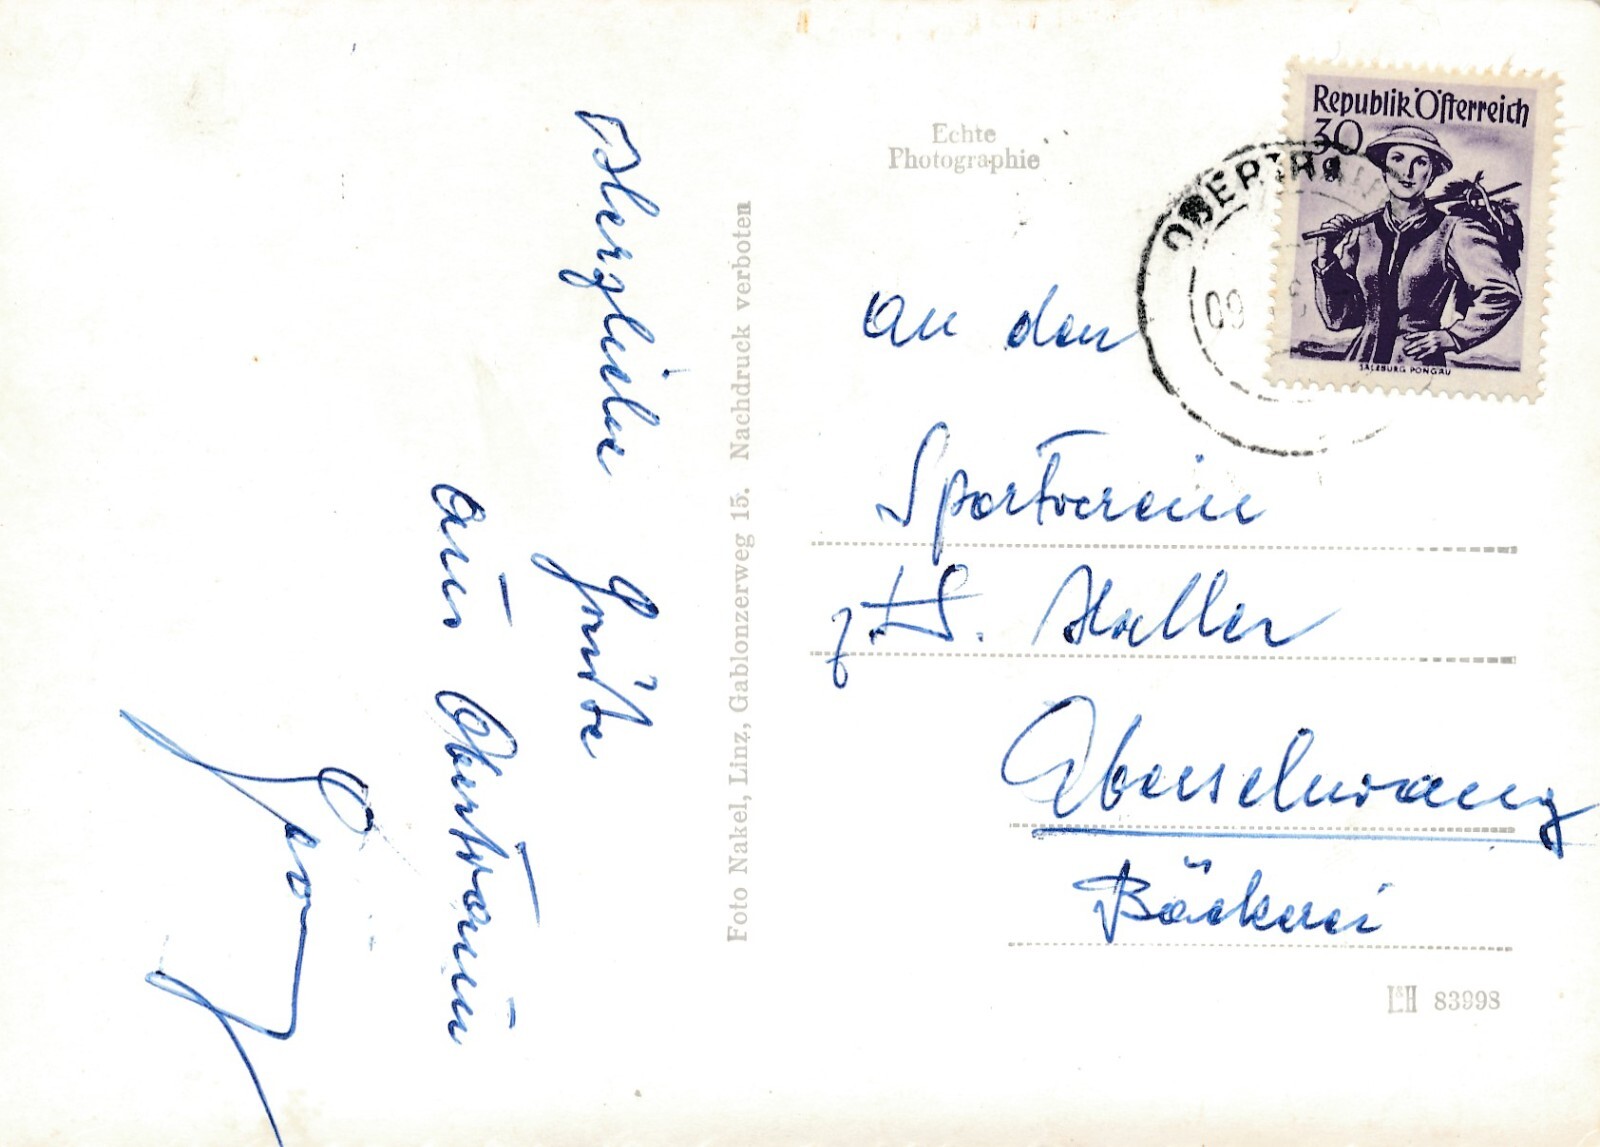 Herzliche
Grüße
aus Obertraun
Foto Nakel, Linz, Gablonzerweg 15. Nachdruck verboten
Echte
Photographie
Republik Österreich
30
SALZBURG PONGAU
OBERTRA
09
An den
Sportverein
z. H. Haller
Oberschwang
Bäckerei
L&H 83998